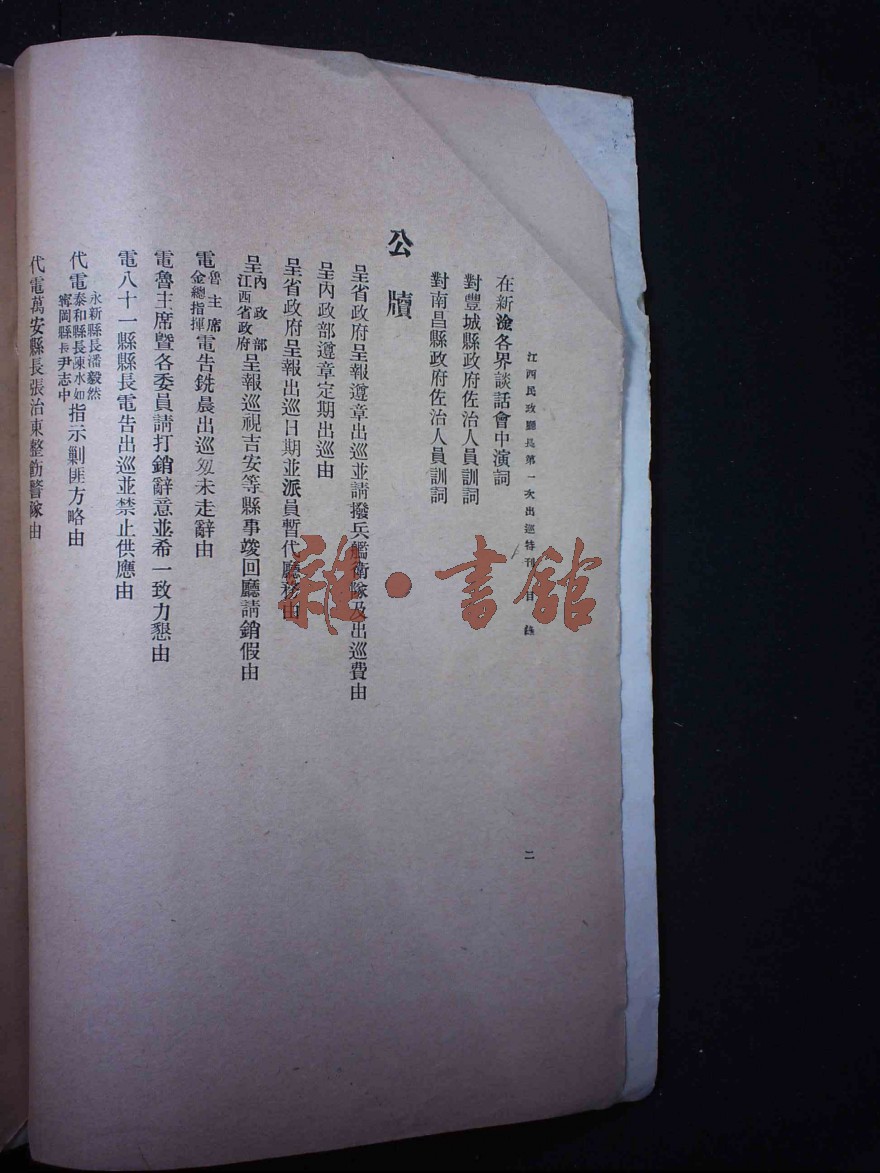 江西民政廳長第一次出巡特刊 目錄 二
在新淦各界談話會中演詞
對豐城縣政府佐治人員訓詞
對南昌縣政府佐治人員訓詞
公牘
呈省政府呈報遵章出巡並請撥兵艦衛隊及出巡費由
呈內政部遵章定期出巡由
呈省政府呈報出巡日期並派員暫代廳務由
呈內政部江西省政府呈報巡視吉安等縣事竣回廳請銷假由
電魯主席金總指揮電吿銑晨出巡匆未走辭由
電魯主席暨各委員請打銷辭意並希一致力懇由
電八十一縣縣長電吿出巡並禁止供應由
代電永新縣長潘毅然泰和縣長陳水如寗岡縣長尹志中指示剿匪方略由
代電萬安縣長張治東整飭警隊由
雜·書館